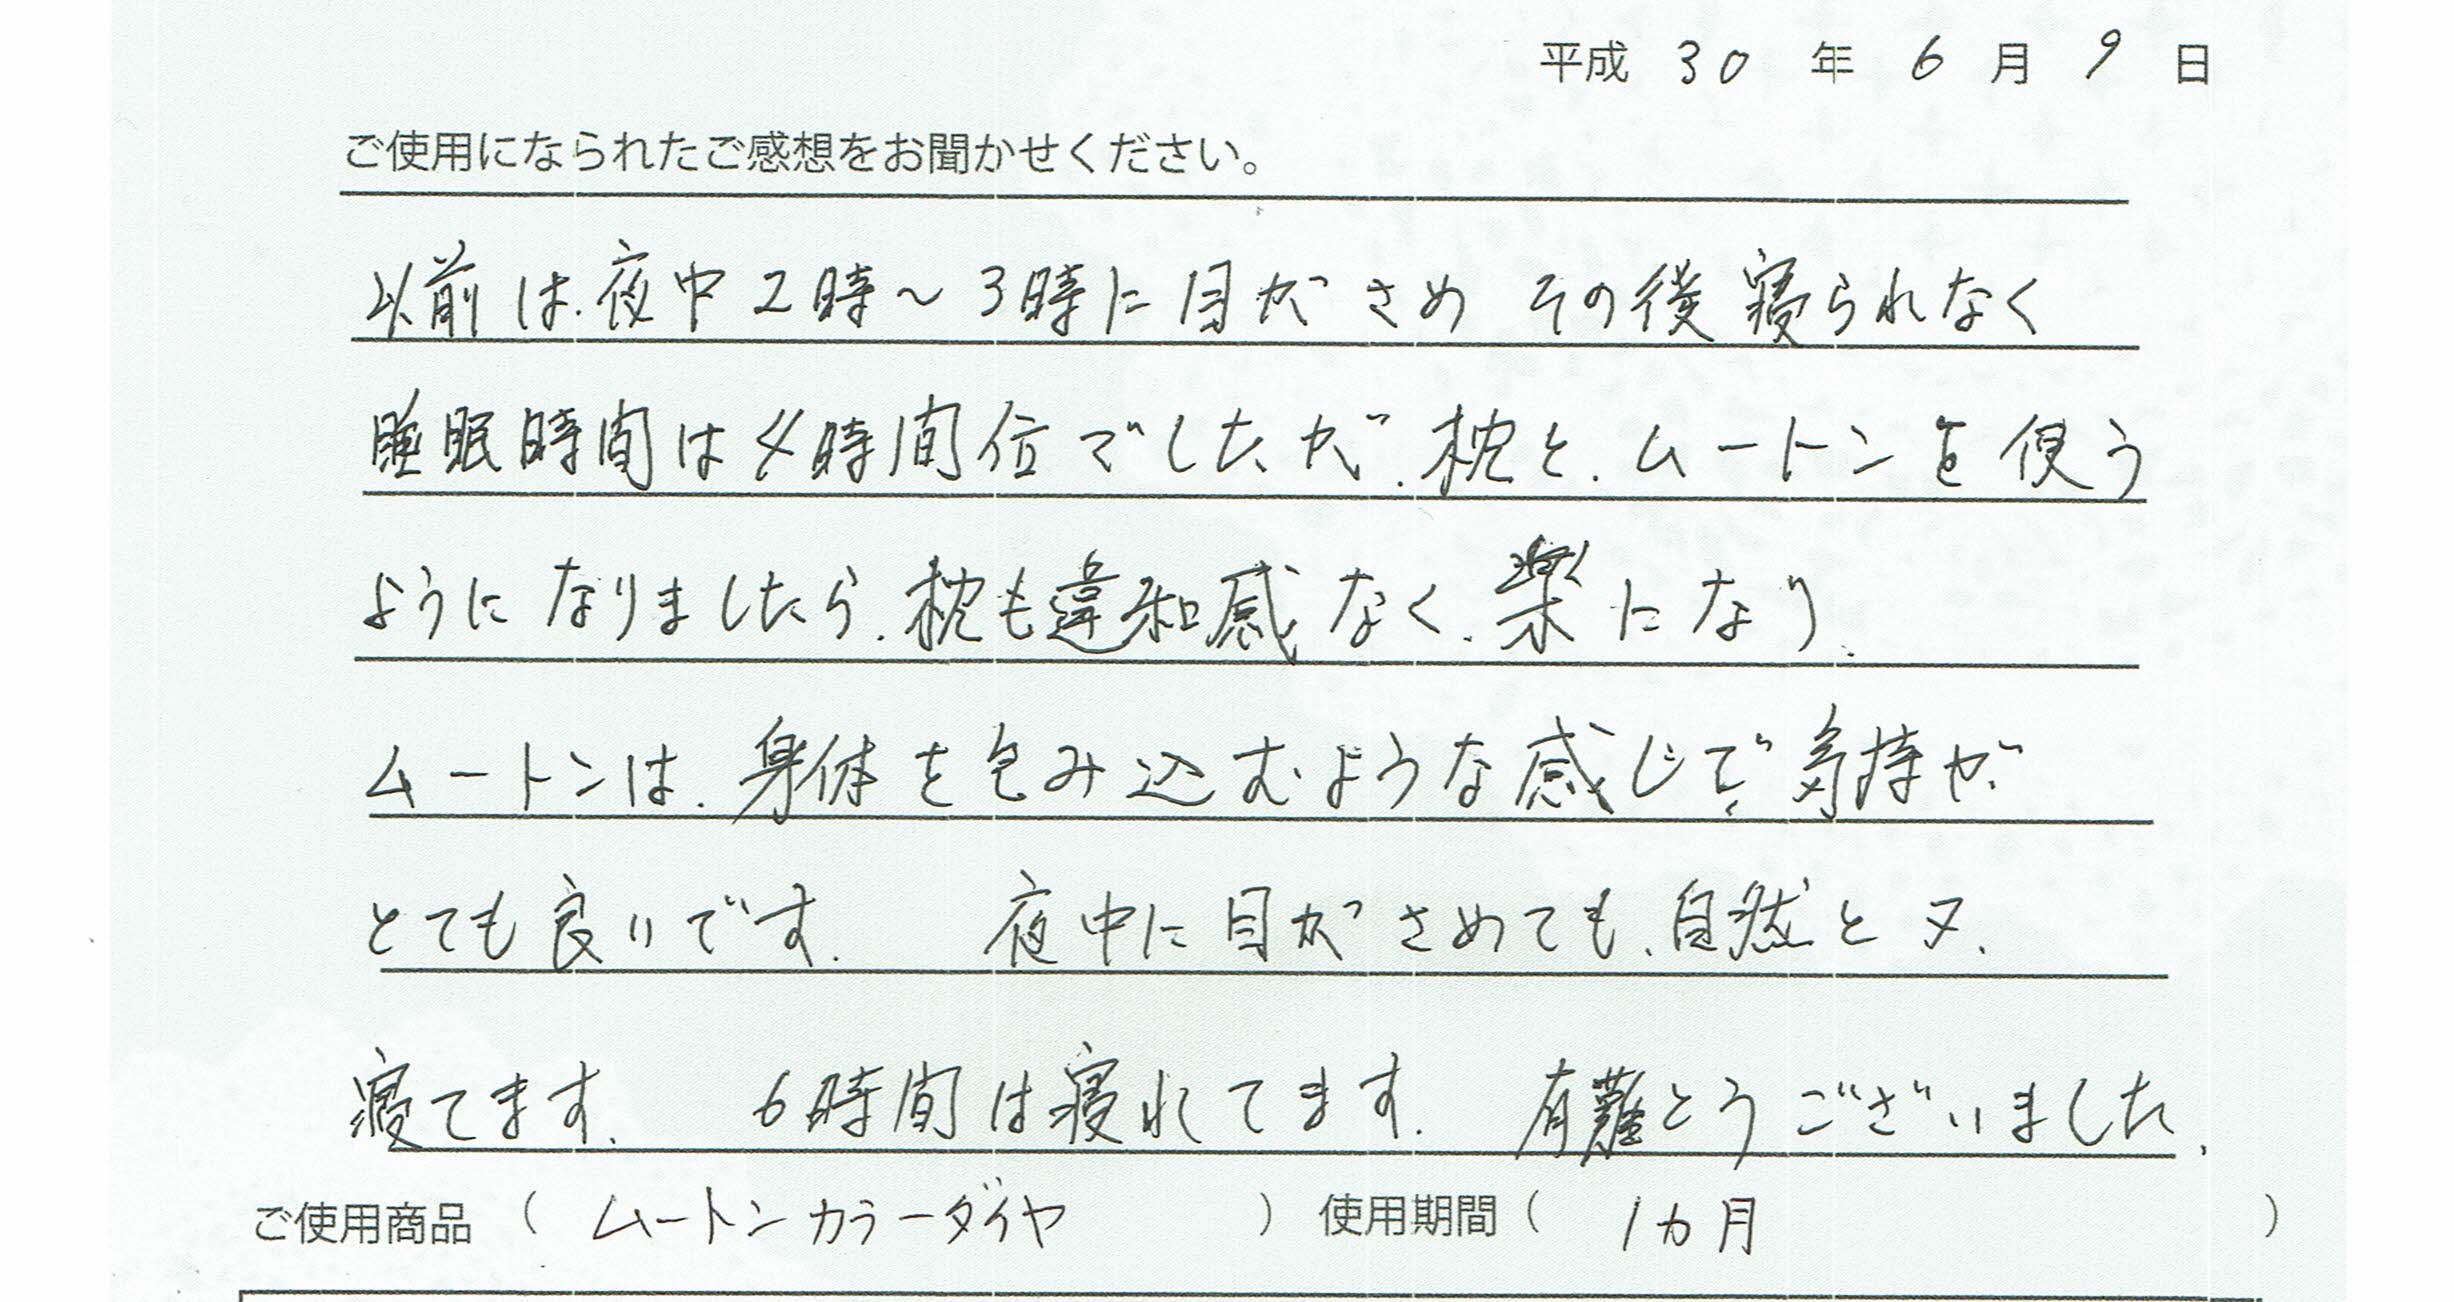 平成 30 年 6 月 9 日
ご使用になられたご感想をお聞かせください。
以前は、夜中2時～3時に目がさめ その後寝られなく
睡眠時間は4時間位でしたが、枕と、ムートンを使う
ようになりましたら、枕も違和感なく、楽になり、
ムートンは、身体を包み込むような感じで気持が
とても良いです。 夜中に目がさめても、自然と又、
寝てます。 6時間は寝れてます。 有難とうございました。
ご使用商品 （ ムートンカラーダイヤ ） 使用期間（ 1カ月 ）